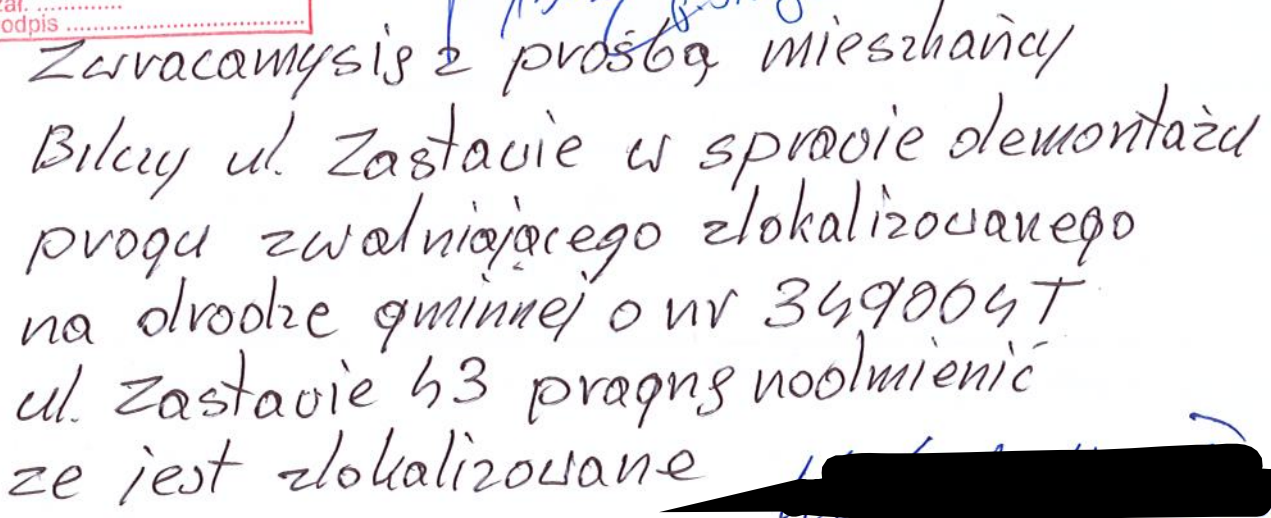 zał. ..............
odpis ..................................
Zwracamysię z prośbą mieszkańcy
Bilczy ul. Zastawie w sprawie demontażu
progu zwalniającego zlokalizowanego
na drodze gminnej o nr 349004T
ul. Zastawie 43 pragnę nadmienić
ze jest zlokalizowane